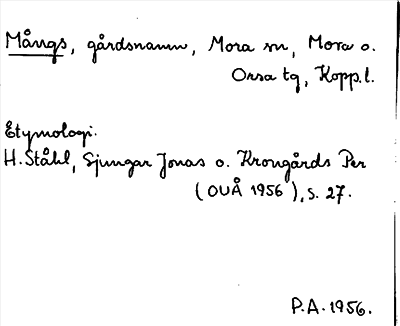 Mångs, gårdsnamn, Mora sn, Mora o.
Orsa tg, Kopp. l.
Etymologi.
H. Ståhl, Sjungar Jonas o. Krongårds Per
(OUÅ 1956), s. 27.
P.A. 1956.